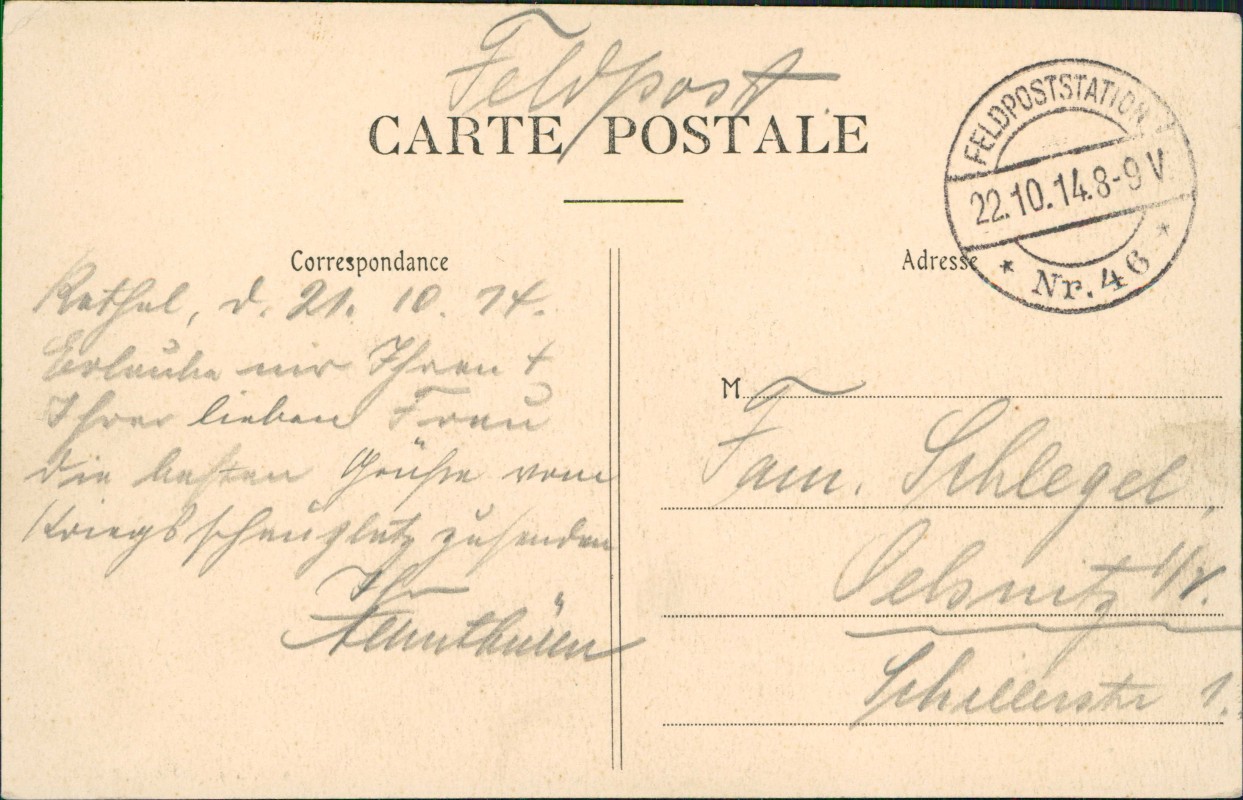 Feldpost
CARTE POSTALE
FELDPOSTSTATION
22.10.14.8-9 V.
* Nr. 46 *
Correspondance
Adresse
Rethel, d. 21. 10. 14.
Erlaube mir Ihnen +
Ihrer lieben Frau
die besten Grüße vom
Kriegsschauplatz zusenden
Ihr
M
Fam. Schlegel,
Oelsnitz i/V.
Schillerstr 1.